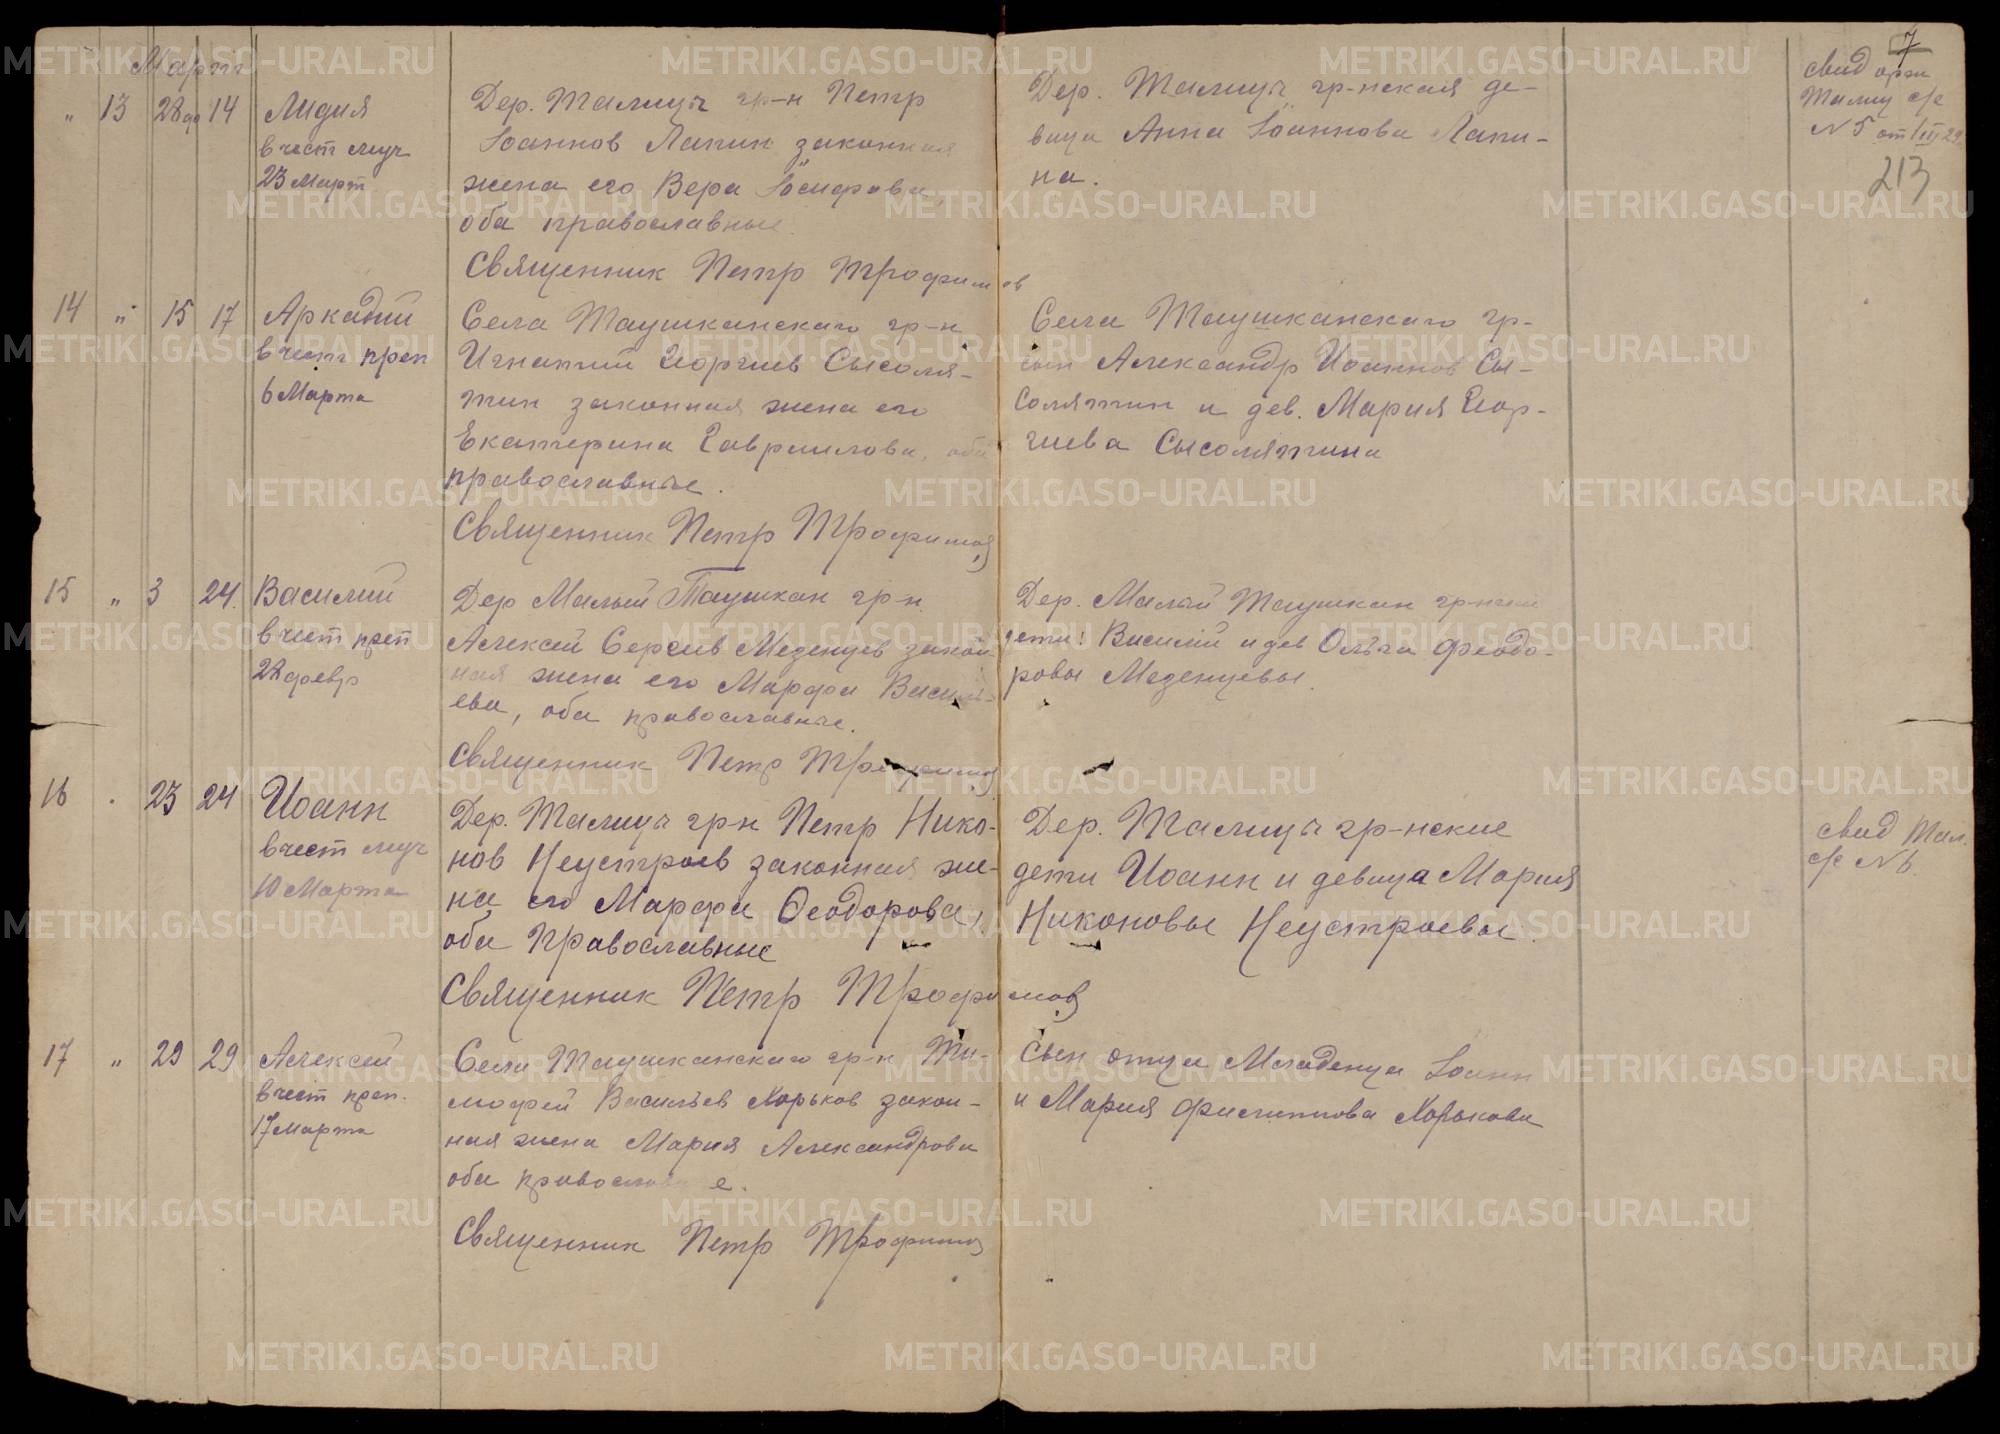 Март
„ 13 28 фе 14 Лидия
в чест муч
23 Март
Дер. Талица гр-н Петр
Іоаннов Лапин законная
жена его Вера Іосифова,
оба православные.
Священник Петр Трофимов
Дер. Талица гр-нская де-
вица Анна Іоаннова Лапи-
на.
7
свид
Талиц с/с
N 5 от 1/III 29
213
14 „ 15 17 Аркадий
в чест преп
6 Марта
Села Таушканскаго гр-н
Игнатий Георгиев Сысоля-
тин законная жена его
Екатерина Гавриилова, оба
православные.
Священник Петр Трофимов
Села Таушканскаго гр-
сын Александр Иоаннов Сы-
солятин и дев. Мария Геор-
гиева Сысолятина
15 „ 3 24 Василий
в чест преп
28 февр
Дер Малый Таушкан гр-н
Алексей Сергиев Меденцев закон-
ная жена его Марфа Василь-
ева, оба православные.
Священник Петр Трофимов
Дер. Малый Таушкан гр-нские
дети: Василий и дев Ольга Феодо-
ровы Меденцевы.
16 . 23 24 Иоанн
в чест муч
10 Марта
Дер. Талица гр-н Петр Нико-
нов Неустроев законная же-
на его Марфа Феодорова,
оба Православные
Священник Петр Трофимов
Дер. Талица гр-нские
дети Иоанн и девица Мария
Никоновы Неустроевы.
свид Тал.
с/с N 6.
17 „ 29 29 Алексей
в чест преп.
17 Марта
Села Таушканскаго гр-н Ти-
мофей Васильев Хорьков закон-
ная жена Мария Александрова
оба православные.
Священник Петр Трофимов
Сын отца Младенца Іоанн
и Мария Филиппова Хорькова
METRIKI.GASO-URAL.RU